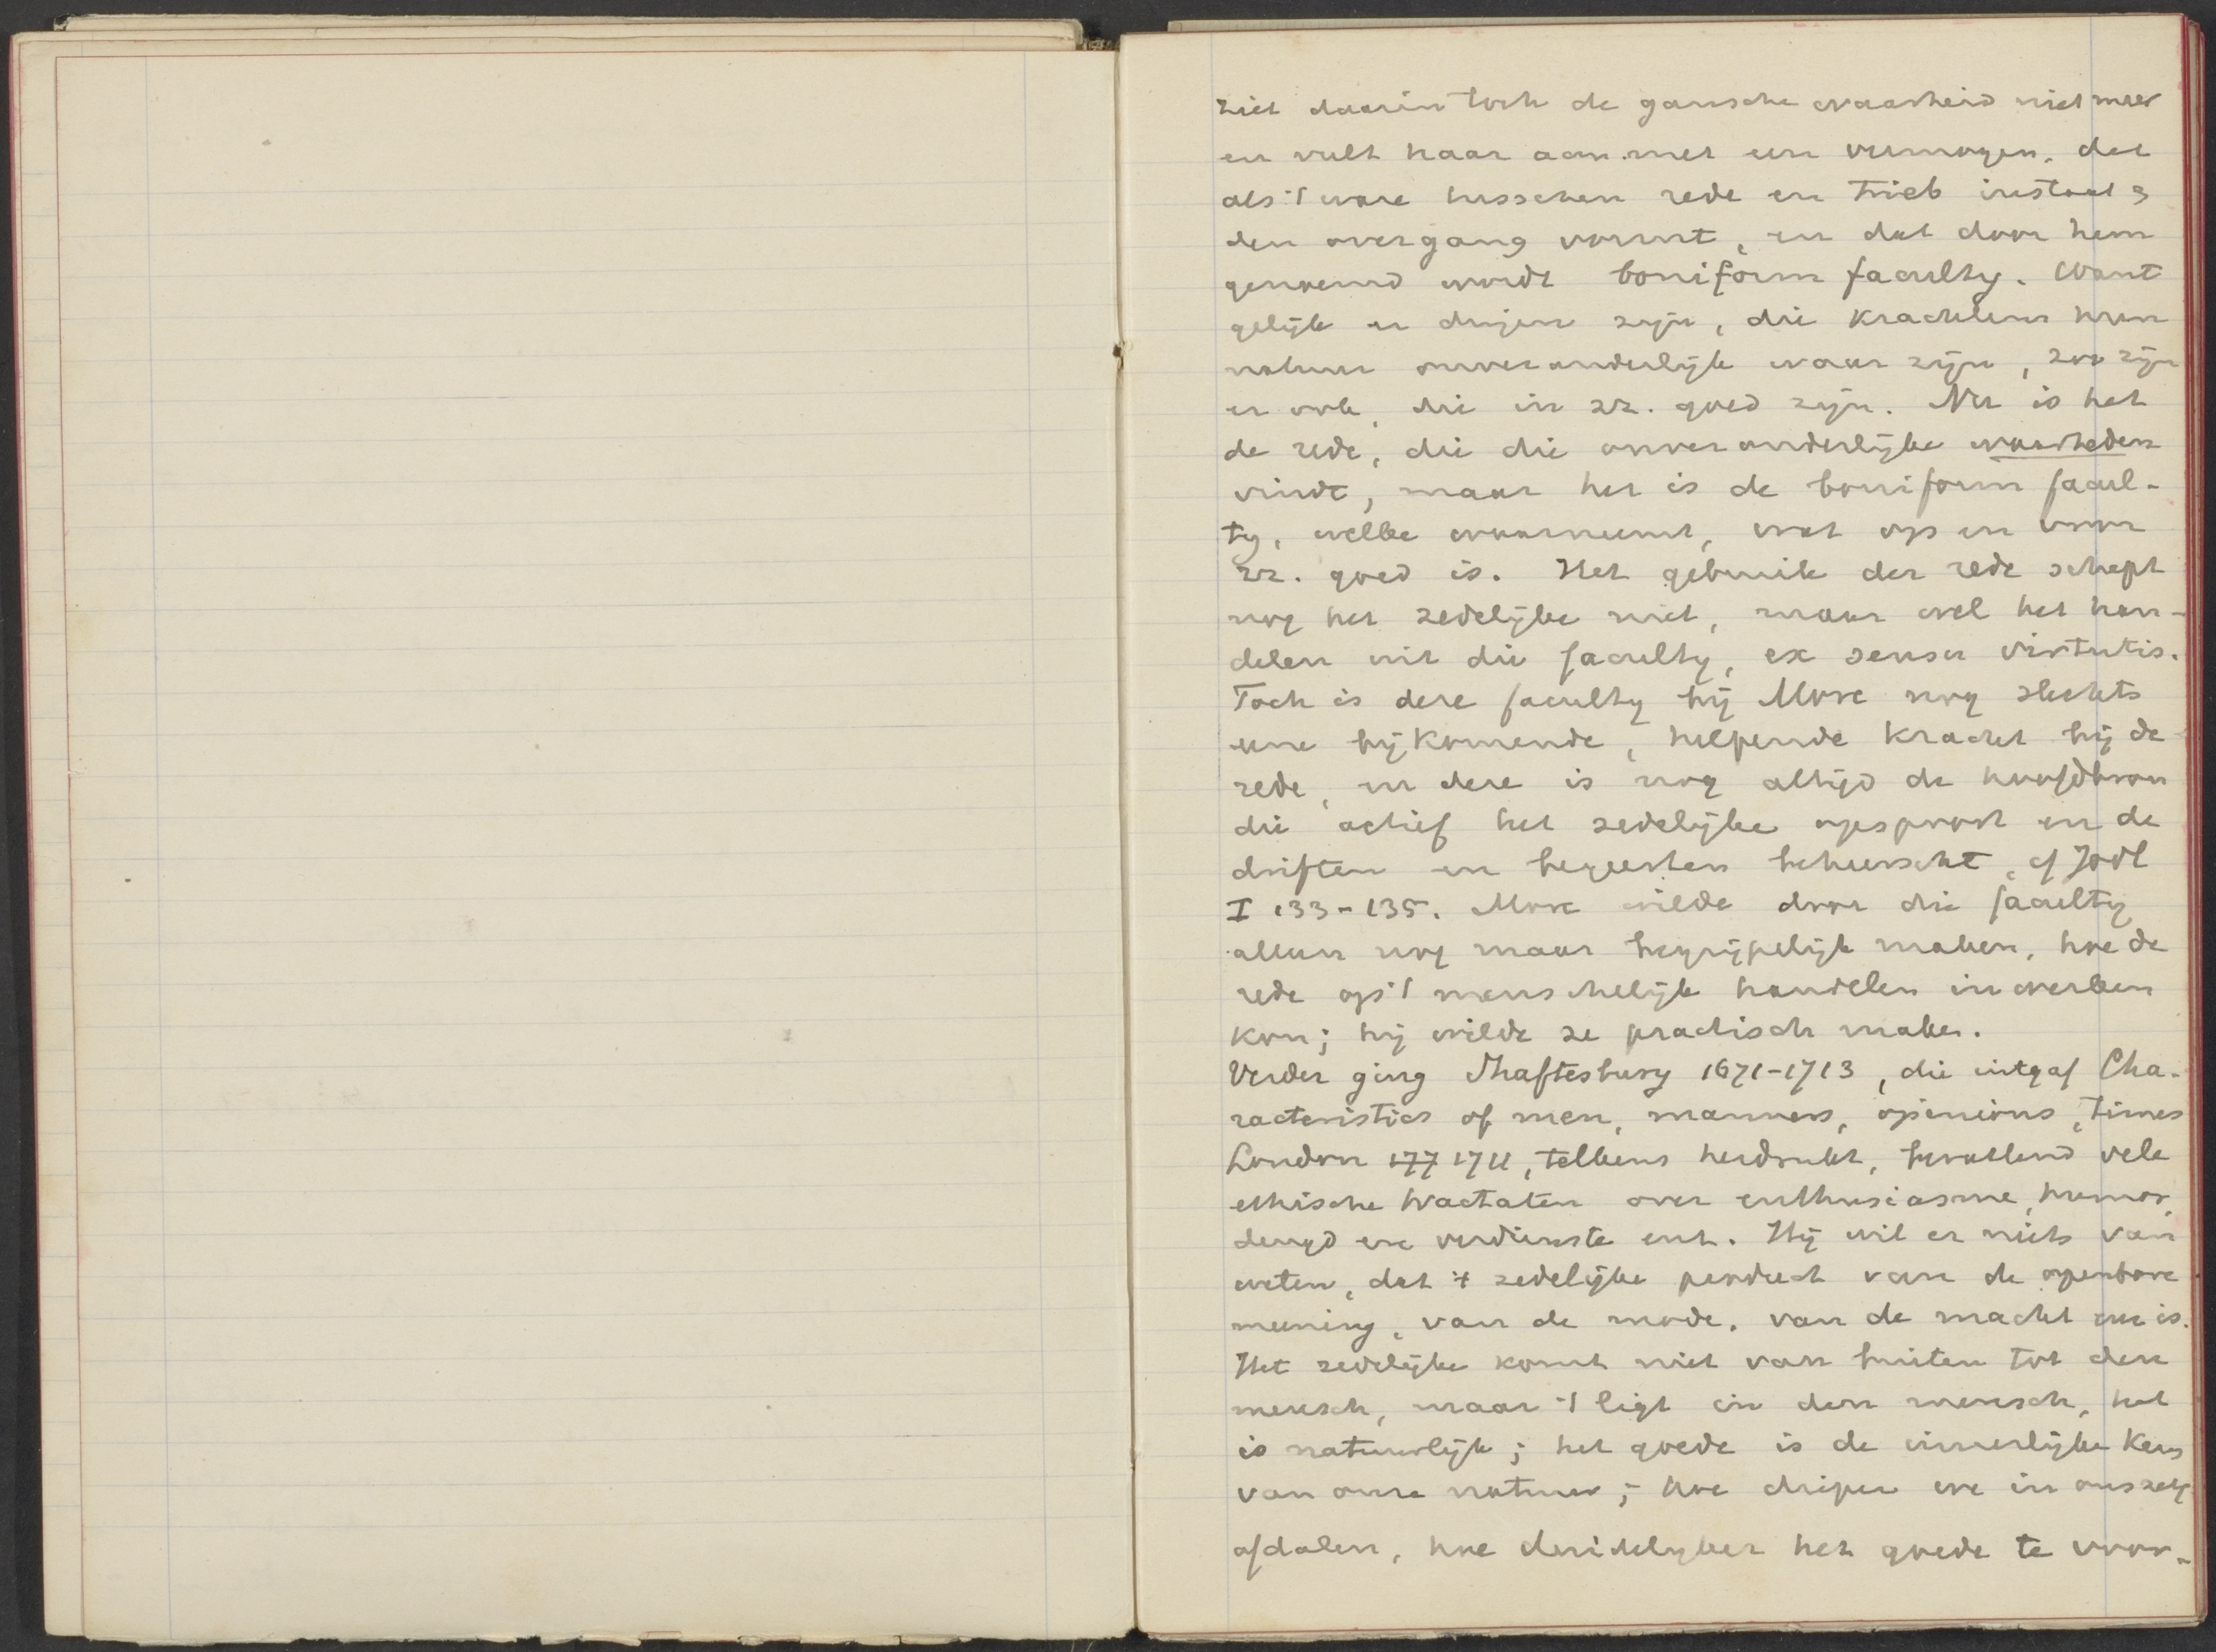 ziet daarin toch de gansche waarheid niet meer
en vult haar aan met een vermogen, dat
als 't ware tusschen rede en Trieb instaat &
den overgang vormt, en dat door hem
genoemd wordt boniform faculty. Want
gelijk er dingen zijn, die krachtens hun
natuur onveranderlijk waar zijn, zoo zijn
er ook, die in zz. goed zijn. Nu is het
de rede, die die onveranderlijke waarheden
vindt, maar het is de boniform facul-
ty, welke waarneemt, wat op en voor
zz. goed is. Het gebruik der rede schept
nog het zedelijke niet, maar wel het han-
delen uit die faculty, ex sensu virtutis.
Toch is deze faculty bij More nog slechts
eene bijkomende, helpende kracht bij de
rede, en deze is nog altijd de hoofdbron
die actief het zedelijke opspoort en de
driften en begeerten beheerscht, cf Jodl
I 133-135. More wilde door die faculty
alleen nog maar begrijpelijk maken, hoe de
rede op 't menschelijk handelen inwerken
kon; hij wilde ze practisch maken.
Verder ging Shaftesbury 1671-1713, die uitgaf Cha-
racteristics of men, manners, opinions, times
London 177 1711, telkens herdrukt, bevattend vele
ethische tractaten over enthusiasme, humor,
deugd en verdienste enz. Hij wil er niets van
weten, dat 't zedelijke product van de openbare
meening, van de mode, van de macht enz is.
Het zedelijke komt niet van buiten tot den
mensch, maar 't ligt in den mensch, het
is natuurlijk; het goede is de innerlijke kern
van onze natuur; hoe dieper we in onszelf
afdalen, hoe duidelijker het goede te voor-